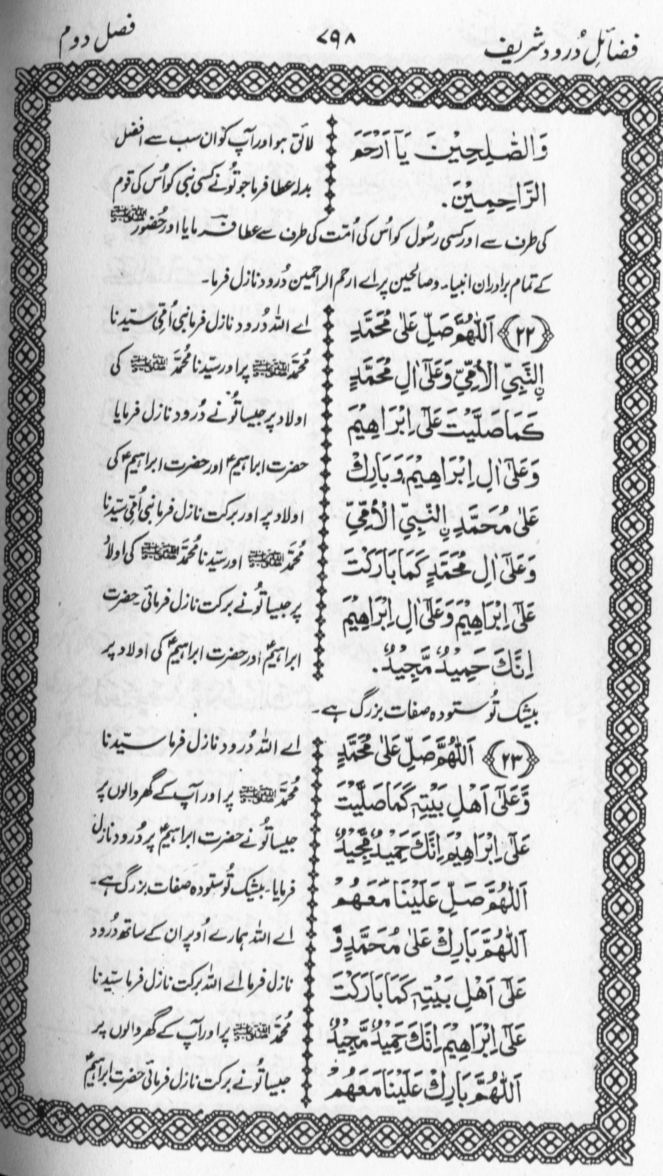 فضائلِ دُرود شریف
۷۹۸
فصل دوم
وَالصّٰلِحِيْنَ يَآ اَرْحَمَ
الرَّاحِمِيْنَ۔
لائق ہو اور آپ کو ان سب سے افضل
بدلہ عطا فرما جو تُو نے کسی نبی کو اُس کی قوم
کی طرف سے اور کسی رسُول کو اُس کی اُمّت کی طرف سے عطا فرمایا اور حضُور ﷺ
کے تمام برادران انبیاء و صالحین پر اے ارحم الراحمین دُرود نازل فرما۔
﴿۲۲﴾ اَللّٰهُمَّ صَلِّ عَلٰى مُحَمَّدِ
ِۨالنَّبِيِّ الْاُمِّيِّ وَعَلٰٓى اٰلِ مُحَمَّدٍ
كَمَا صَلَّيْتَ عَلٰٓى اِبْرَاهِيْمَ
وَعَلٰٓى اٰلِ اِبْرَاهِيْمَ وَبَارِكْ
عَلٰى مُحَمَّدِ ِۨالنَّبِيِّ الْاُمِّيِّ
وَعَلٰٓى اٰلِ مُحَمَّدٍ كَمَا بَارَكْتَ
عَلٰٓى اِبْرَاهِيْمَ وَعَلٰٓى اٰلِ اِبْرَاهِيْمَ
اِنَّكَ حَمِيْدٌ مَّجِيْدٌ۔
اے اللہ دُرود نازل فرما نبی اُمّی سیّدنا
مُحمّد ﷺ پر اور سیّدنا مُحمّد ﷺ کی
اولاد پر جیسا تُو نے دُرود نازل فرمایا
حضرت ابراہیمؑ اور حضرت ابراہیمؑ کی
اولاد پر اور برکت نازل فرما نبی اُمّی سیّدنا
مُحمّد ﷺ اور سیّدنا مُحمّد ﷺ کی اولاد
پر جیسا تُو نے برکت نازل فرمائی حضرت
ابراہیمؑ اور حضرت ابراہیمؑ کی اولاد پر
بیشک تُو ستودہ صفات بزرگ ہے۔
﴿۲۳﴾ اَللّٰهُمَّ صَلِّ عَلٰى مُحَمَّدٍ
وَّعَلٰٓى اَهْلِ بَيْتِهٖ كَمَا صَلَّيْتَ
عَلٰٓى اِبْرَاهِيْمَ اِنَّكَ حَمِيْدٌ مَّجِيْدٌ
اَللّٰهُمَّ صَلِّ عَلَيْنَا مَعَهُمْ
اَللّٰهُمَّ بَارِكْ عَلٰى مُحَمَّدٍ وَّ
عَلٰٓى اَهْلِ بَيْتِهٖ كَمَا بَارَكْتَ
عَلٰٓى اِبْرَاهِيْمَ اِنَّكَ حَمِيْدٌ مَّجِيْدٌ
اَللّٰهُمَّ بَارِكْ عَلَيْنَا مَعَهُمْ
اے اللہ دُرود نازل فرما سیّدنا
مُحمّد ﷺ پر اور آپ کے گھر والوں پر
جیسا تُو نے حضرت ابراہیمؑ پر دُرود نازل
فرمایا۔ بیشک تُو ستودہ صفات بزرگ ہے۔
اے اللہ ہمارے اُوپر ان کے ساتھ دُرود
نازل فرما اے اللہ برکت نازل فرما سیّدنا
مُحمّد ﷺ پر اور آپ کے گھر والوں پر
جیسا تُو نے برکت نازل فرمائی حضرت ابراہیمؑ